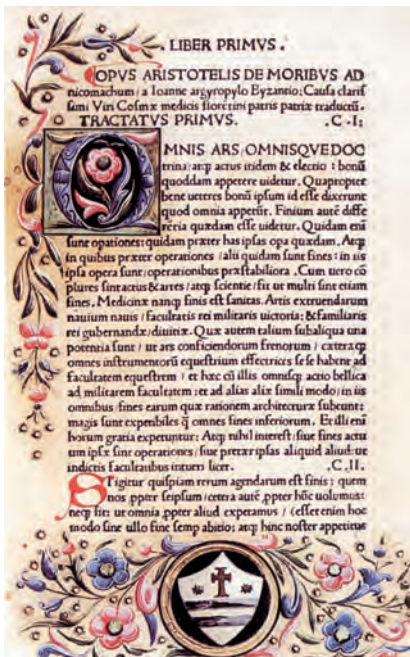 . LIBER PRIMVS .
OPVS ARISTOTELIS DE MORIBVS AD
nicomachum; a Ioanne argyropylo Byzantio; Causa clariſ
ſimi Viri Coſmæ medicis florẽtini patris patriæ traductũ.
TRACTATVS PRIMVS. .C.I:
OMNIS ARS OMNISQVE DOC
trina/atq; actus itidem & electio : bonũ
quoddam appetere uidetur. Quapropter
bene ueteres bonũ ipſum id eſſe dixerunt
quod omnia appetũt. Finium autẽ diffe
rẽtia quædam eſſe uidetur. Quidam enĩ
ſunt opationes: quidam præter has ipſas opa quædam. Atq;
in quibus præter operationes /alii quidam ſunt fines: in iis
ipſa opera ſunt/operationibus præſtabiliora. Cum uero cõ
plures ſint actus & artes / atq; scientiæ/fit ut multi ſint etiam
fines. Medicinæ nanq; finis eſt ſanitas. Artis extruendarum
nauium nauis / facultatis rei militaris uictoria: & familiaris
rei gubernandæ/diuitiæ. Quæ autem talium ſub aliqua una
potentia ſunt / ut ars conficiendorum frenorum / cæteræq;
omnes inſtrumentorũ equeſtrium effectrices ſe ſe habent ad
facultatem equeſtrem / et hæc cũ illis omniſq; actio bellica
ad militarem facultatem : et ad alias aliæ ſimili modo/in iis
omnibus /fines earum quæ rationem architecturæ ſubeunt:
magis ſunt expetibiles q̃ omnes fines inferiorum. Et illi enĩ
horum gratia expetuntur: Atq; nihil intereſt /ſiue fines actu
um ipſæ ſint operationes / ſiue præter ipſas aliquid aliud: ut
in dictis facultatibus intueri licet. .C.II.
SIgitur quiſpiam rerum agendarum eſt finis : quem
nos ,ppter ſeipſum /cetera autẽ ,ppter hũc uolumus:
neq; fit: ut omnia ,ppter aliud expetamus / (eſſet enim hoc
modo ſine ullo fine ſemp abitio: atq; hinc noſter appetitus